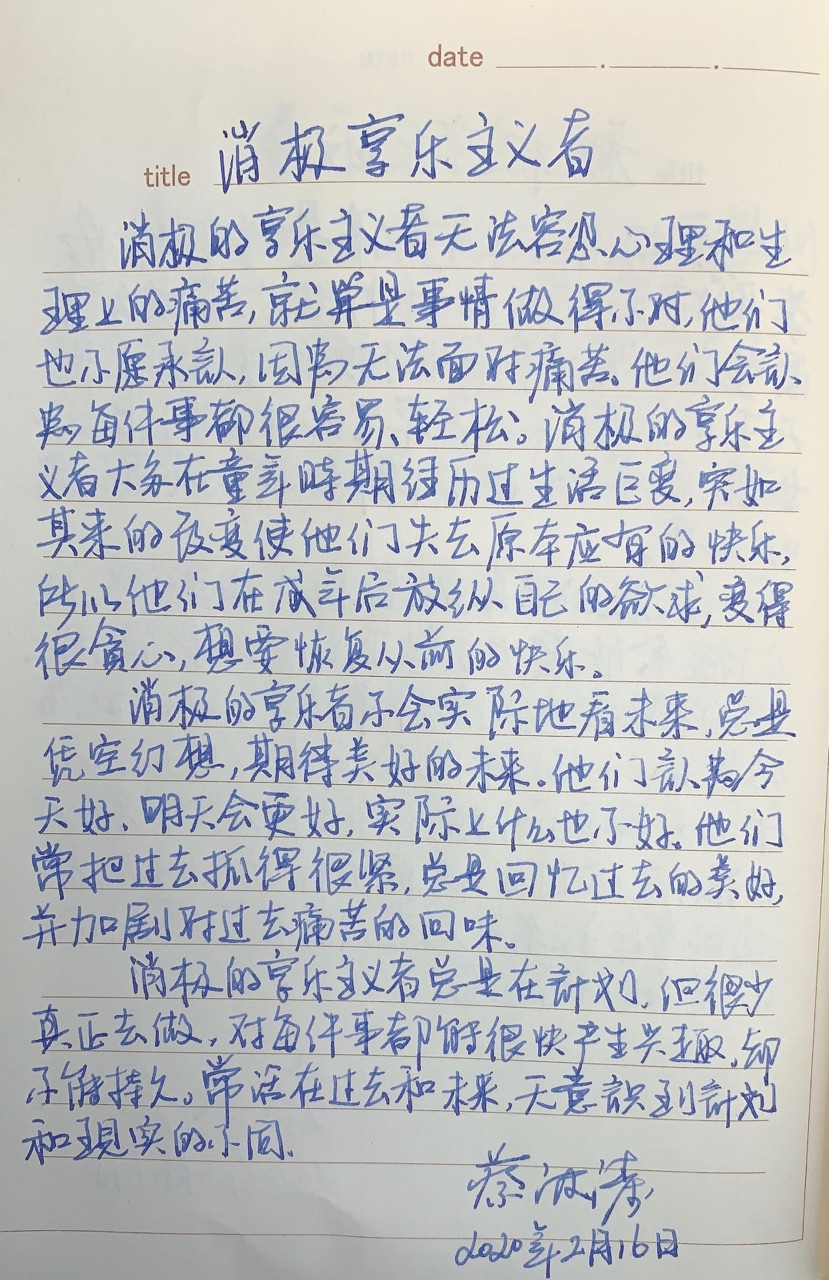 date
title 消极享乐主义者
消极的享乐主义者无法容忍心理和生
理上的痛苦,就算是事情做得不对,他们
也不愿承認,因為无法面对痛苦。他们会認
為每件事都很容易、轻松。消极的享乐主
义者大多在童年時期经历过生活巨变,突如
其来的改变使他们失去原本应有的快乐,
所以他们在成年后放纵自己的欲求,变得
很貪心,想要恢复从前的快乐。
消极的享乐者不会实际地看未来,总是
凭空幻想,期待美好的未来。他们認為今
天好、明天会更好,实际上什么也不好。他们
常把过去抓得很紧,总是回忆过去的美好,
并加剧对过去痛苦的回味。
消极的享乐主义者总是在計划,但很少
真正去做,对每件事都能很快产生兴趣,却
不能持久。常活在过去和未来,无意識到計划
和現实的不同.
蔡波涛
2020年2月16日